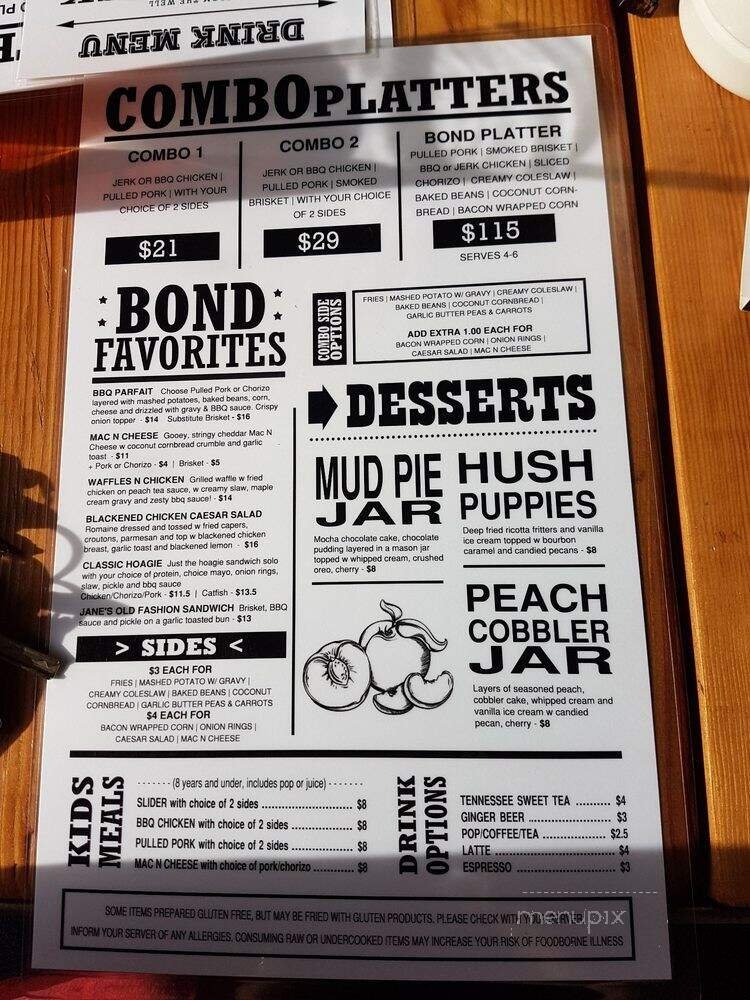 DRINK MENU
COMBO PLATTERS
COMBO 1
JERK OR BBQ CHICKEN |
PULLED PORK | WITH YOUR
CHOICE OF 2 SIDES
$21
COMBO 2
JERK OR BBQ CHICKEN |
PULLED PORK | SMOKED
BRISKET | WITH YOUR CHOICE
OF 2 SIDES
$29
BOND PLATTER
PULLED PORK | SMOKED BRISKET |
BBQ or JERK CHICKEN | SLICED
CHORIZO | CREAMY COLESLAW |
BAKED BEANS | COCONUT CORN-
BREAD | BACON WRAPPED CORN
$115
SERVES 4-6
BOND
FAVORITES
BBQ PARFAIT Choose Pulled Pork or Chorizo
layered with mashed potatoes, baked beans, corn,
cheese and drizzled with gravy & BBQ sauce. Crispy
onion topper - $14 Substitute Brisket - $16
MAC N CHEESE Gooey, stringy cheddar Mac N
Cheese w coconut cornbread crumble and garlic
toast - $11
+ Pork or Chorizo - $4 | Brisket - $5
WAFFLES N CHICKEN Grilled waffle w fried
chicken on peach tea sauce, w creamy slaw, maple
cream gravy and zesty bbq sauce! - $14
BLACKENED CHICKEN CAESAR SALAD
Romaine dressed and tossed w fried capers,
croutons, parmesan and top w blackened chicken
breast, garlic toast and blackened lemon - $16
CLASSIC HOAGIE Just the hoagie sandwich solo
with your choice of protein, choice mayo, onion rings,
slaw, pickle and bbq sauce
Chicken/Chorizo/Pork - $11.5 | Catfish - $13.5
JANE'S OLD FASHION SANDWICH Brisket, BBQ
sauce and pickle on a garlic toasted bun - $13
> SIDES <
$3 EACH FOR
FRIES | MASHED POTATO W/ GRAVY |
CREAMY COLESLAW | BAKED BEANS | COCONUT
CORNBREAD | GARLIC BUTTER PEAS & CARROTS
$4 EACH FOR
BACON WRAPPED CORN | ONION RINGS |
CAESAR SALAD | MAC N CHEESE
COMBO SIDE
OPTIONS
FRIES | MASHED POTATO W/ GRAVY | CREAMY COLESLAW |
BAKED BEANS | COCONUT CORNBREAD |
GARLIC BUTTER PEAS & CARROTS
ADD EXTRA 1.00 EACH FOR
BACON WRAPPED CORN | ONION RINGS |
CAESAR SALAD | MAC N CHEESE
DESSERTS
MUD PIE
JAR
Mocha chocolate cake, chocolate
pudding layered in a mason jar
topped w whipped cream, crushed
oreo, cherry - $8
HUSH
PUPPIES
Deep fried ricotta fritters and vanilla
ice cream topped w bourbon
caramel and candied pecans - $8
PEACH
COBBLER
JAR
Layers of seasoned peach,
cobbler cake, whipped cream and
vanilla ice cream w candied
pecan, cherry - $8
KIDS
MEALS
------- (8 years and under, includes pop or juice) -------
SLIDER with choice of 2 sides .......... $8
BBQ CHICKEN with choice of 2 sides .......... $8
PULLED PORK with choice of 2 sides .......... $8
MAC N CHEESE with choice of pork/chorizo .......... $8
DRINK
OPTIONS
TENNESSEE SWEET TEA .......... $4
GINGER BEER .......... $3
POP/COFFEE/TEA .......... $2.5
LATTE .......... $4
ESPRESSO .......... $3
SOME ITEMS PREPARED GLUTEN FREE, BUT MAY BE FRIED WITH GLUTEN PRODUCTS. PLEASE CHECK WITH YOUR SERVER.
INFORM YOUR SERVER OF ANY ALLERGIES. CONSUMING RAW OR UNDERCOOKED ITEMS MAY INCREASE YOUR RISK OF FOODBORNE ILLNESS
menupix